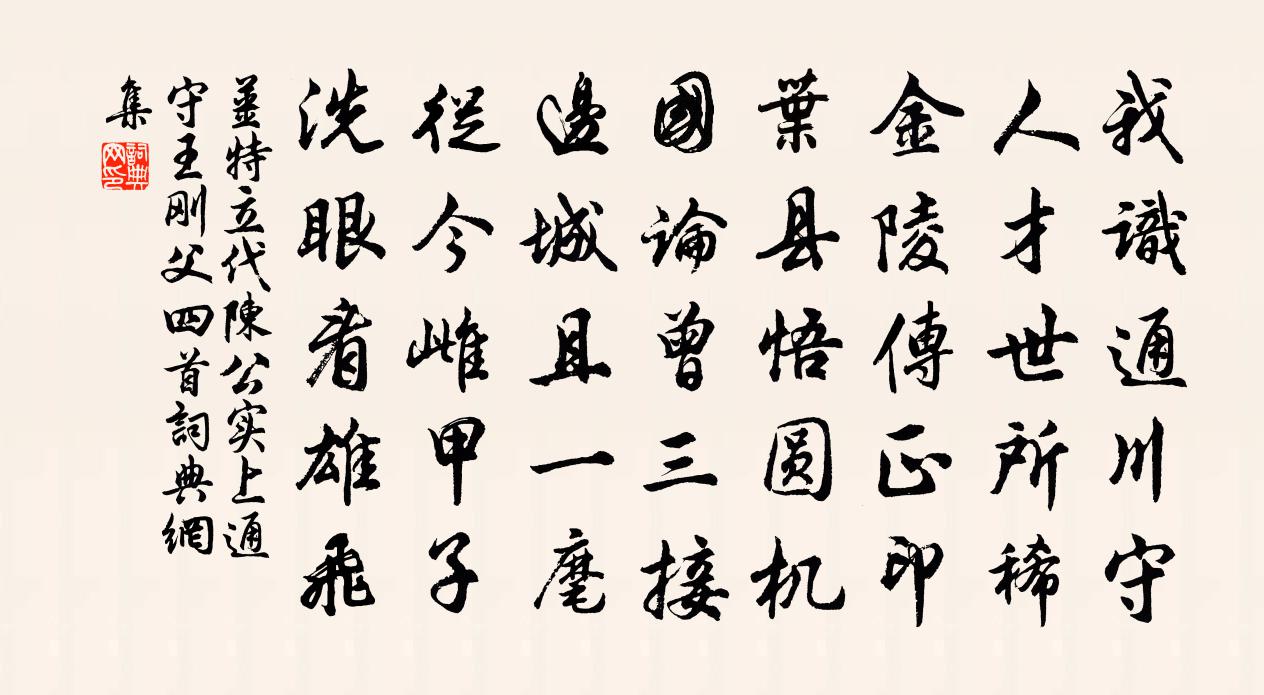 我識通川守
人才世所稀
金陵傳正印
葉县悟圆机
國論曾三接
邊城且一麾
從今雌甲子
洗眼看雄飛
姜特立代陳公实上通
守王刚父四首詞典網
集
詞典
网印